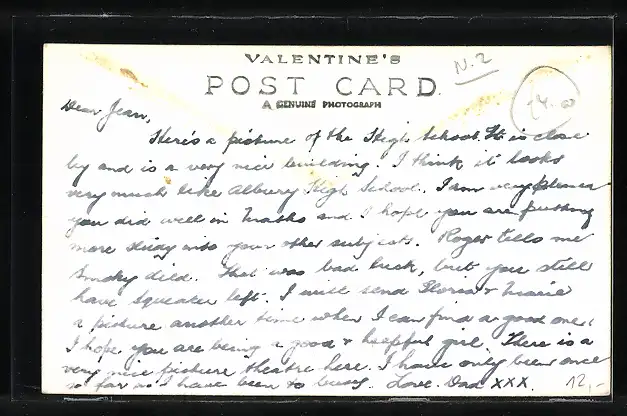 VALENTINE'S
POST CARD.
A GENUINE PHOTOGRAPH
N.2
Dear Jean,
Here's a picture of the High School. It is close
by and is a very nice building. I think it looks
very much like Albury High School. I am very pleased
you did well in Maths and I hope you are putting
more study into your other subjects. Roger tells me
Smoky died. That was bad luck, but you still
have Squeaker left. I will send & Marie
a picture another time when I can find a good one.
I hope you are being a good & helpful girl. There is a
very nice picture theatre here. I have only been once
so far as I have been to busy. Love. Dad XXX.
12,-